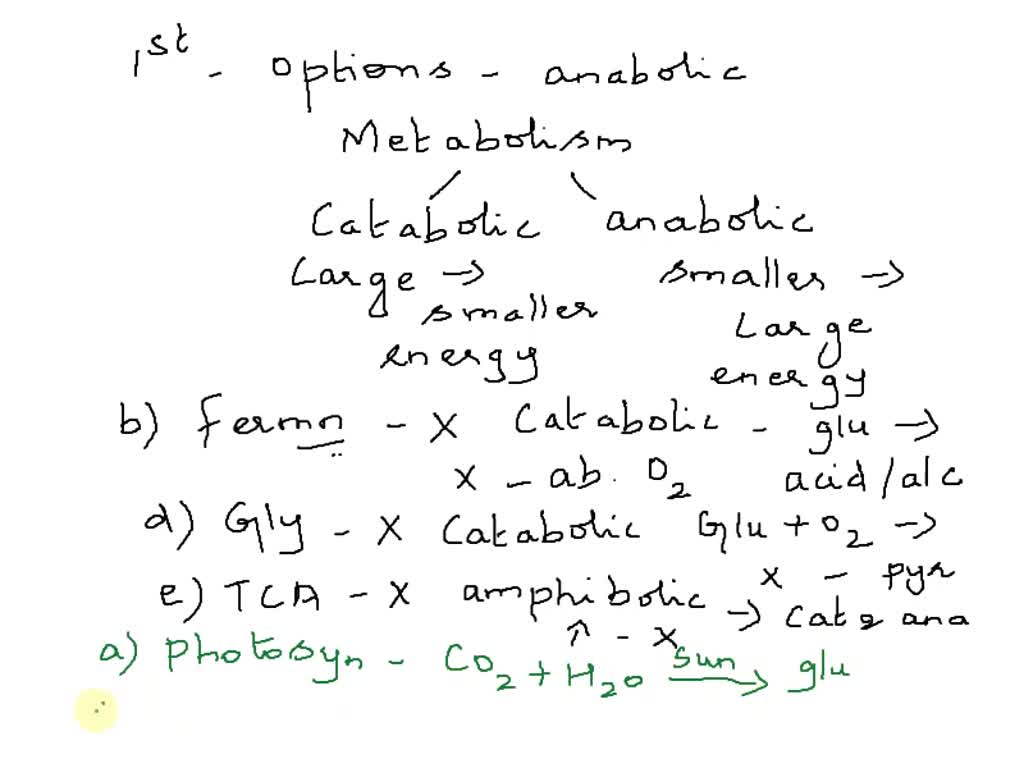 1st - options - anabolic
Metabolism
Catabolic anabolic
Large → smaller →
smaller Large
energy energy
b) Fermn - X Catabolic - glu →
X - ab. O2 acid/alc
d) Gly - X Catabolic Glu + O2 →
X - pyr
e) TCA - X amphibolic → Cat & ana
↑ - X
a) Photosyn - CO2 + H2O sun → glu